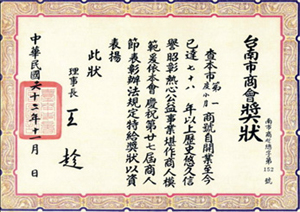 台南市商會獎狀
南市商總字第152號
查本市度小月第一商號自開業至今
已達七十八年以上歷史悠久信
譽昭孚熱心公益事業堪作商人模
範爰依本會慶祝第廿七屆商人
節表彰辦法規定特給獎狀以資
表揚
此狀
理事長 王
中華民國六十二年十一月 日